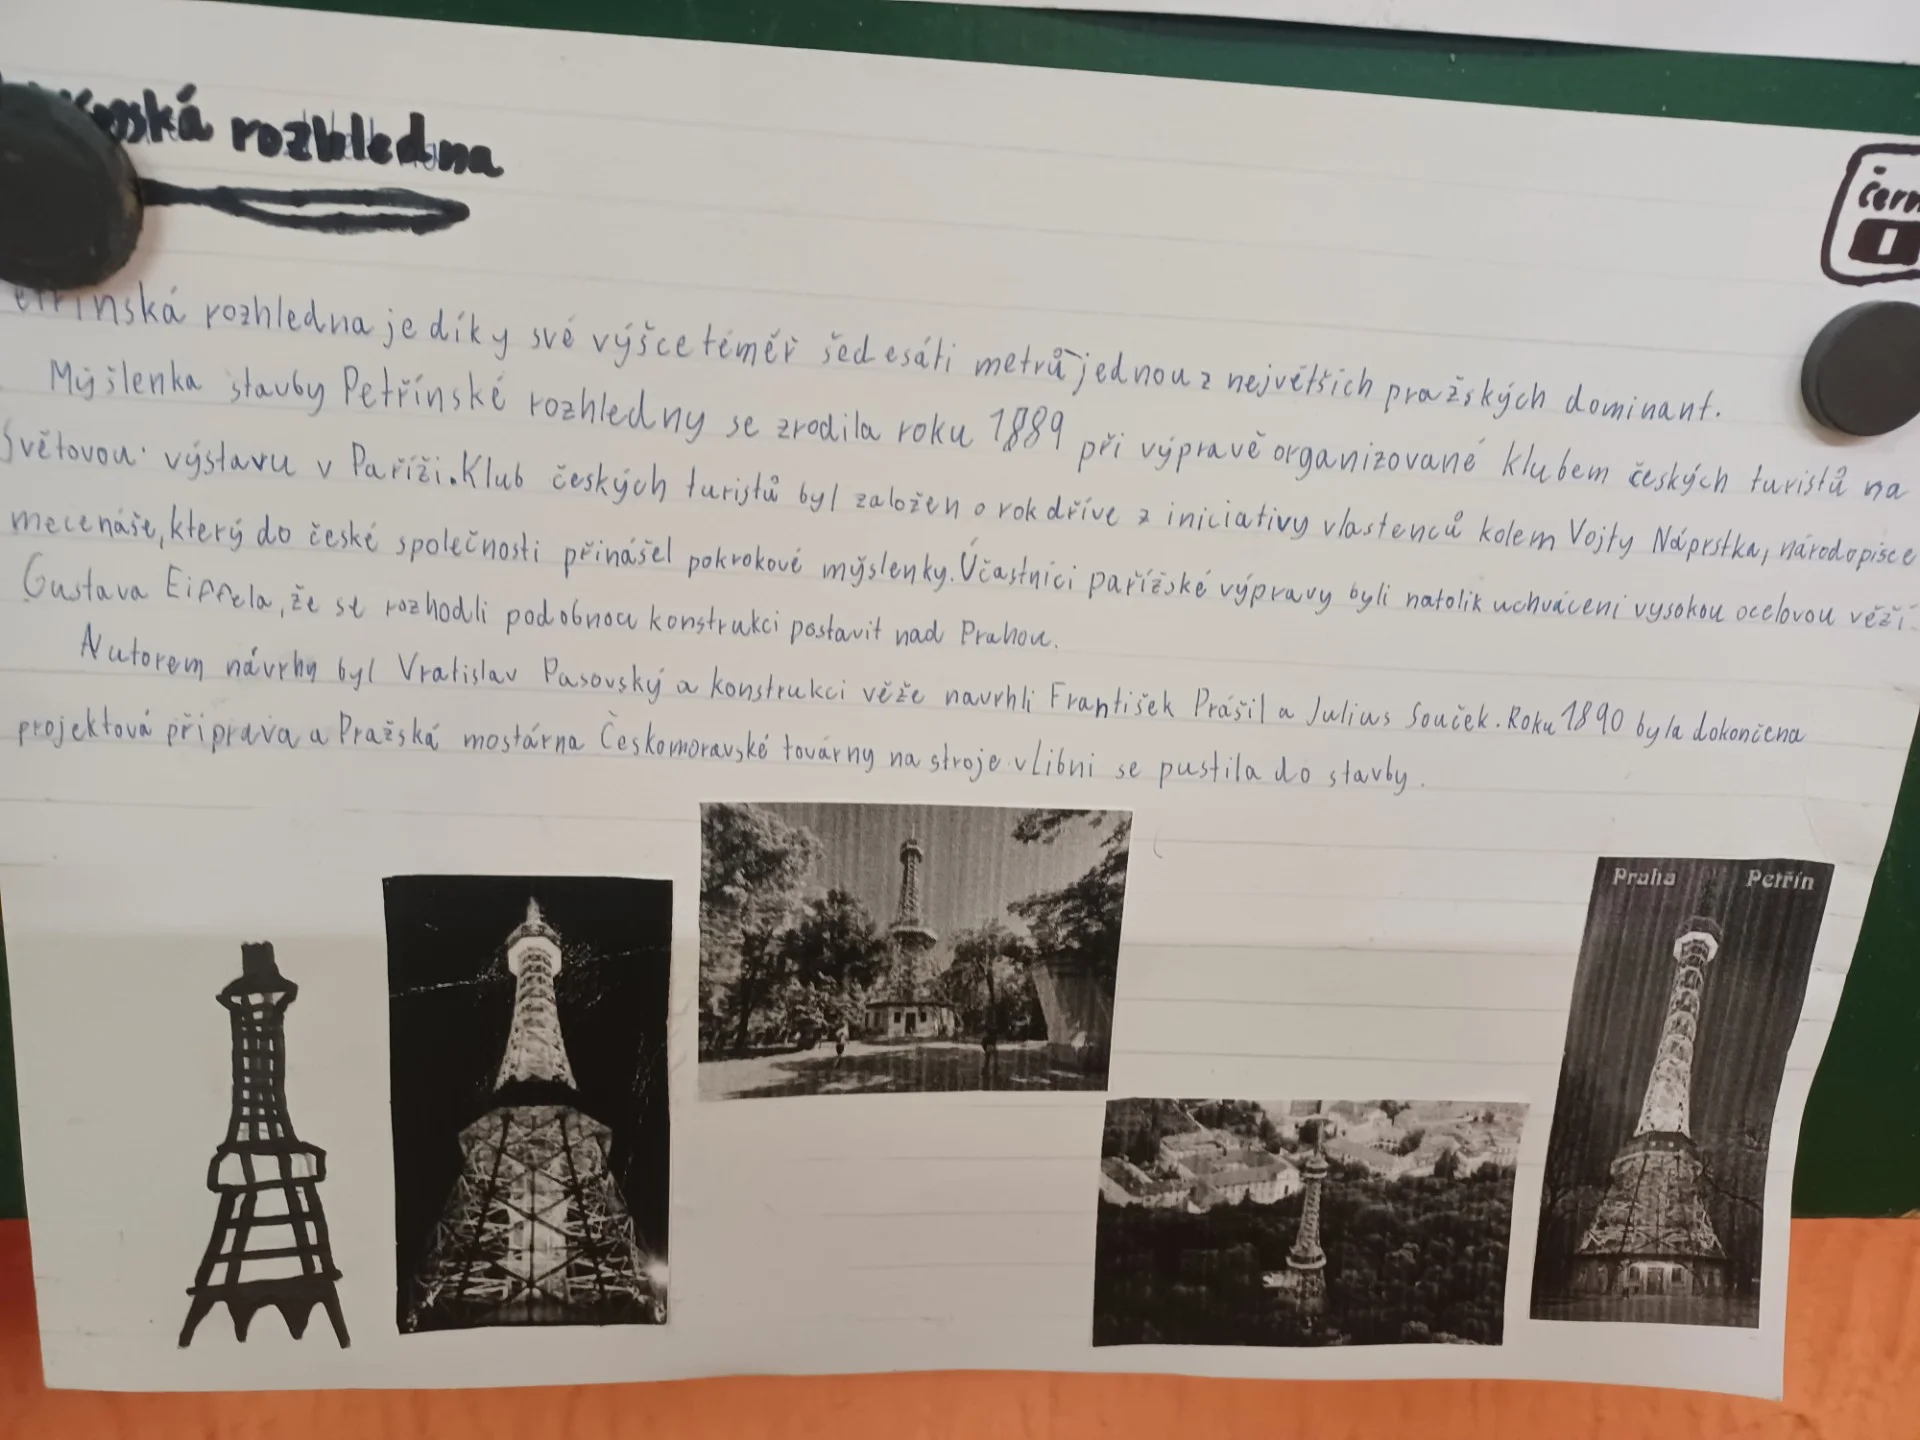 rozhledna
čern
rozhledna je díky své výšce téměř šedesáti metrů jednou z největších pražských dominant.
Myšlenka stavby Petřínské rozhledny se zrodila roku 1889 při výpravě organizované klubem českých turistů na
Světovou výstavu v Paříži. Klub českých turistů byl založen o rok dříve z iniciativy vlastenců kolem Vojty Náprstka, národopisce
mecenáše, který do české společnosti přinášel pokrokové myšlenky. Účastníci pařížské výpravy byli natolik uchváceni vysokou ocelovou věží
Gustava Eiffela, že se rozhodli podobnou konstrukci postavit nad Prahou.
Autorem návrhy byl Vratislav Pasovský a konstrukci věže navrhli František Prášil a Julius Souček. Roku 1890 byla dokončena
projektová příprava a Pražská mostárna Českomoravské továrny na stroje v Libni se pustila do stavby.
Praha Petřín